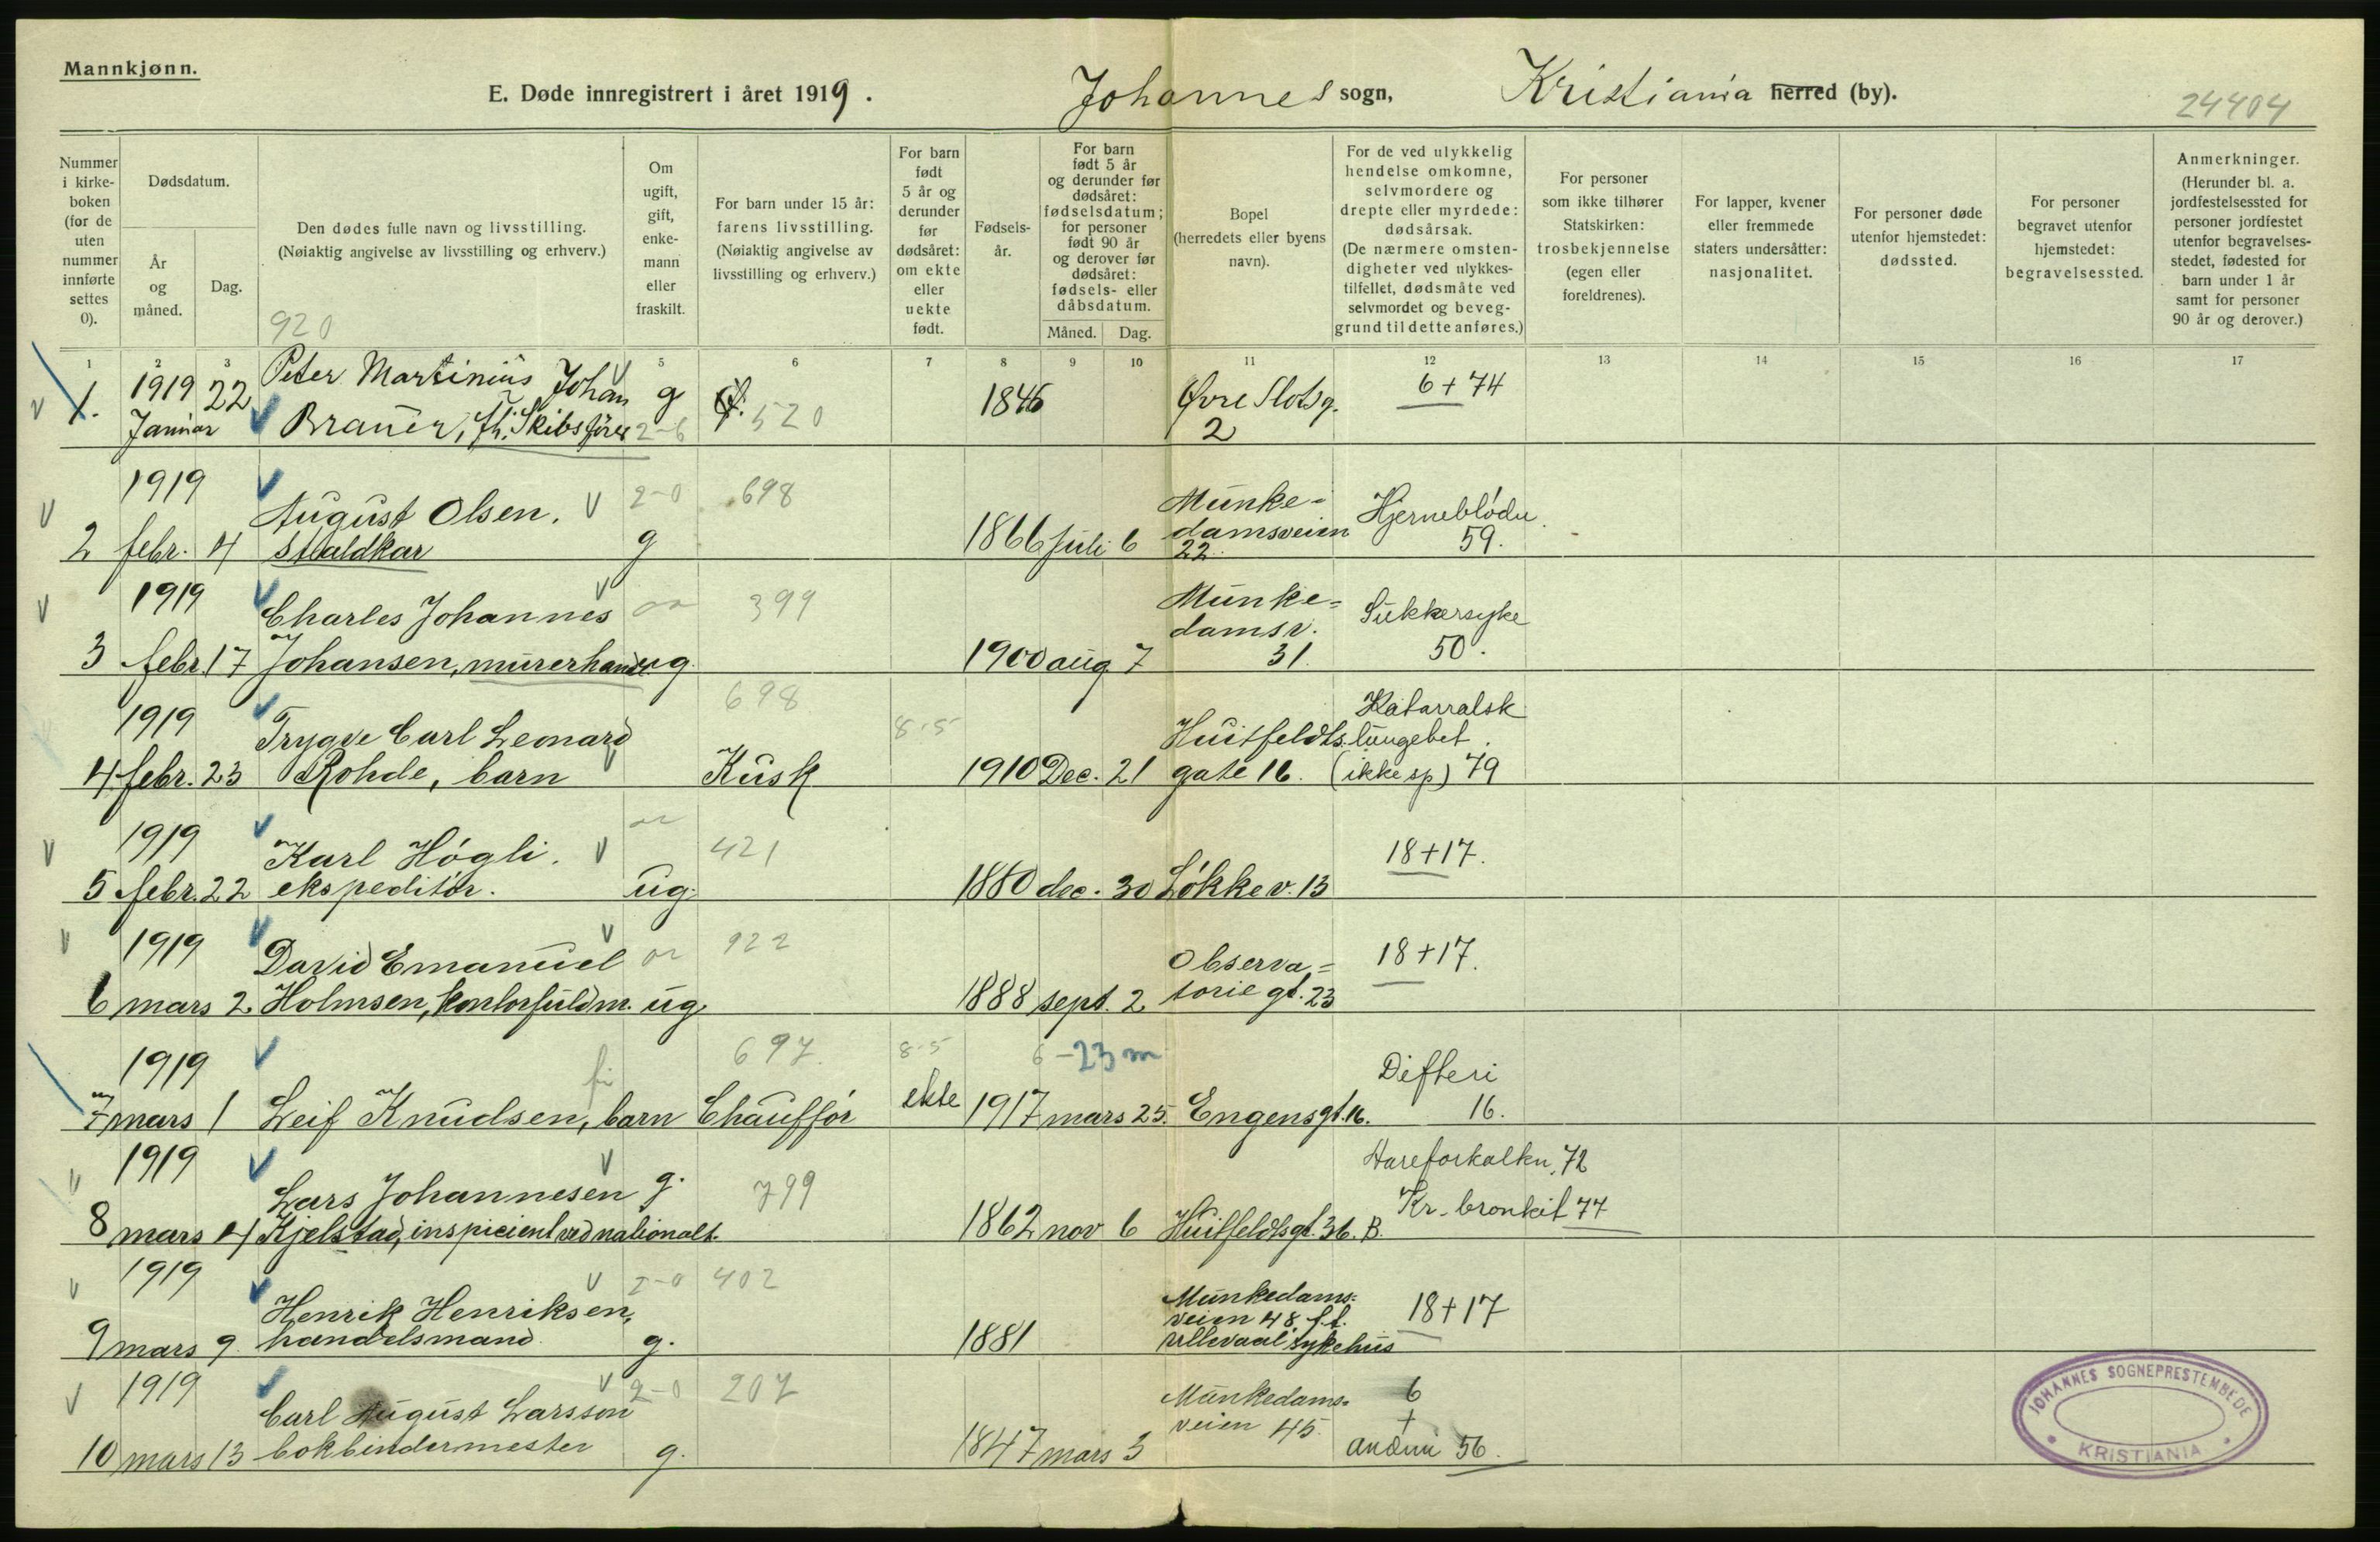 Mannkjønn.
E. Døde innregistrert i året 1919.
Johannes sogn,
Kristiania herred (by).
24404
Nummer i kirkeboken (for de uten nummer innførte settes 0).
Dødsdatum.
År og måned.
Dag.
Den dødes fulle navn og livsstilling.
(Nøiaktig angivelse av livsstilling og erhverv.)
920
Om ugift, gift, enkemann eller fraskilt.
For barn under 15 år: farens livsstilling.
(Nøiaktig angivelse av livsstilling og erhverv.)
For barn født 5 år og derunder før dødsåret: om ekte eller uekte født.
Fødselsår.
For barn født 5 år og derunder før dødsåret: fødselsdatum; for personer født 90 år og derover før dødsåret: fødsels- eller dåbsdatum.
Måned.
Dag.
Bopel
(herredets eller byens navn).
For de ved ulykkelig hendelse omkomne, selvmordere og drepte eller myrdede: dødsårsak.
(De nærmere omstendigheter ved ulykkestilfellet, dødsmåte ved selvmordet og beveggrund til dette anføres.)
For personer som ikke tilhører Statskirken: trosbekjennelse (egen eller foreldrenes).
For lapper, kvener eller fremmede staters undersåtter: nasjonalitet.
For personer døde utenfor hjemstedet: dødssted.
For personer begravet utenfor hjemstedet: begravelsessted.
Anmerkninger.
(Herunder bl. a. jordfestelsessted for personer jordfestet utenfor begravelsesstedet, fødested for barn under 1 år samt for personer 90 år og derover.)
1 2 3 5 6 7 8 9 10 11 12 13 14 15 16 17
1. 1919 Januar 22 Peter Martinius Johan g 520 1846 Øvre Slotsg. 2 6 + 74
Brauer, fh. Skibsfører 2-6
1919 August Olsen. 2-0 698 Munke- Hjerneblødn.
2 febr. 4 Staldkar g 1866 juli 6 damsveien 22. 59.
1919 Charles Johannes 399 Munke- Sukkersyke
3 febr. 17 Johansen, murerhandl. ug. 1900 aug. 7 damsv. 31. 50.
1919 Trygve Carl Leonard 698 8-5 Huitfeldts- Katarralsk lungebet.
4. febr. 23 Rohde, barn Kusk 1910 Dec. 21 gate 16. (ikke sp) 79
1919 Karl Høgli. 421 18+17.
5 febr. 22 ekspeditør. ug. 1880 dec. 30 Løkkev. 13
1919 David Emanuel 922 Observa- 18+17.
6 mars 2. Holmsen, kontorfuldm. ug. 1888 sept. 2 torie gt. 23
1919 697 8-5 6-23 m Difteri
7 mars 1 Leif Knudsen, barn Chauffør ekte 1917 mars 25. Engensgt. 16. 16.
1919 Lars Johannesen g. 799 Aareforkalkn. 72
8 mars 4 Kjelstad, inspicient ved nationalt. 1862 nov 6 Huitfeldtsgt. 36. B. Kr. bronkit 77
1919 Henrik Henriksen, 2-0 402 Munkedams- 18+17
veien 48 f.t.
9 mars 9. handelsmand. g. 1881 Ullevaal sykehus
1919 Carl August Larsson 2-0 207 Munkedams- 6
veien 45. +
10 mars 13 bokbindermester g. 1847 mars 3 56.
JOHANNES SOGNEPRESTEMBEDE
KRISTIANIA